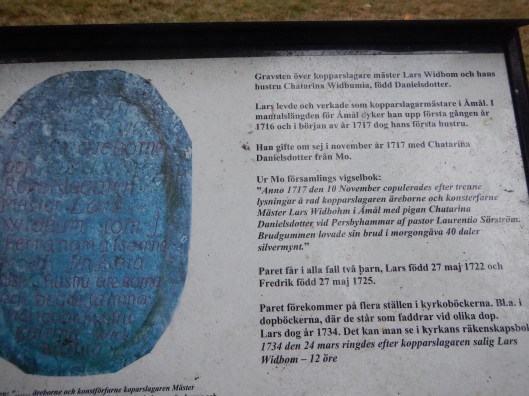 Gravsten över kopparslagare mäster Lars Widbom och hans
hustru Chatarina Widbumia, född Danielsdotter.
Lars levde och verkade som kopparslagarmästare i Åmål. I
mantalslängden för Åmål dyker han upp första gången år
1716 och i början av år 1717 dog hans första hustru.
Han gifte om sej i november år 1717 med Chatarina
Danielsdotter från Mo.
Ur Mo församlings vigselbok:
"Anno 1717 den 10 November copulerades efter trenne
lysningar å rad kopparslagaren äreborne och konsterfarne
Mäster Lars Widbohm i Åmål med pigan Chatarina
Danielsdotter vid Persbyhammar af pastor Laurentio Sårström.
Brudgummen lovade sin brud i morgongåva 40 daler
silvermynt."
Paret får i alla fall två barn, Lars född 27 maj 1722 och
Fredrik född 27 maj 1725.
Paret förekommer på flera ställen i kyrkoböckerna. Bl.a. i
dopböckerna, där de står som faddrar vid olika dop.
Lars dog år 1734. Det kan man se i kyrkans räkenskapsbok
1734 den 24 mars ringdes efter kopparslagaren salig Lars
Widbom – 12 öre
äreborne
Mäster Lars
äreborne och konstförfarne koparslagaren Mäster